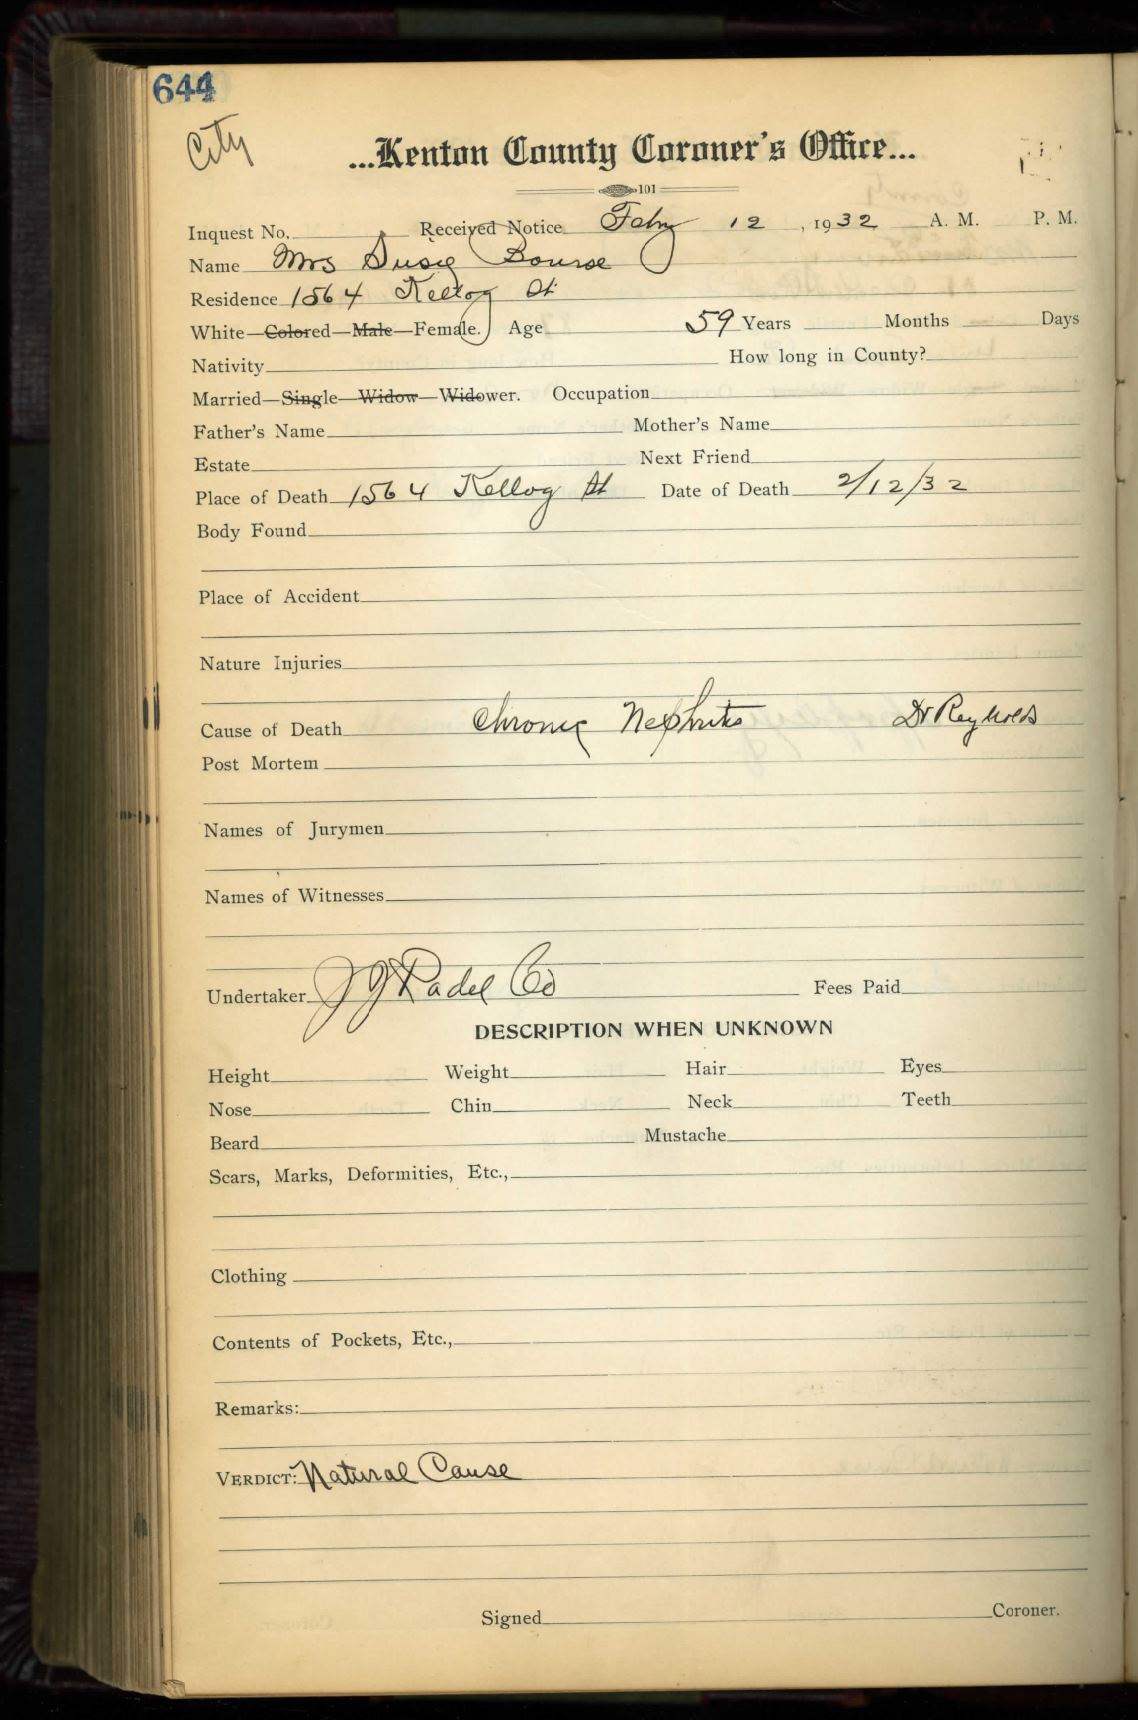 644
City
...Kenton County Coroner's Office...
101
Inquest No. Received Notice Feby 12, 1932 A. M. P. M.
Name Mrs Susie Bourse
Residence 1564 Kellog St
White—Colored—Male—Female. Age 59 Years Months Days
Nativity How long in County?
Married—Single—Widow—Widower. Occupation
Father's Name Mother's Name
Estate Next Friend
Place of Death 1564 Kellog St Date of Death 2/12/32
Body Found
Place of Accident
Nature Injuries
Cause of Death Chronic Nephrits Dr Reynolds
Post Mortem
Names of Jurymen
Names of Witnesses
Undertaker J J Radel Co Fees Paid
DESCRIPTION WHEN UNKNOWN
Height Weight Hair Eyes
Nose Chin Neck Teeth
Beard Mustache
Scars, Marks, Deformities, Etc.,
Clothing
Contents of Pockets, Etc.,
Remarks:
VERDICT: Natural Cause
Signed Coroner.